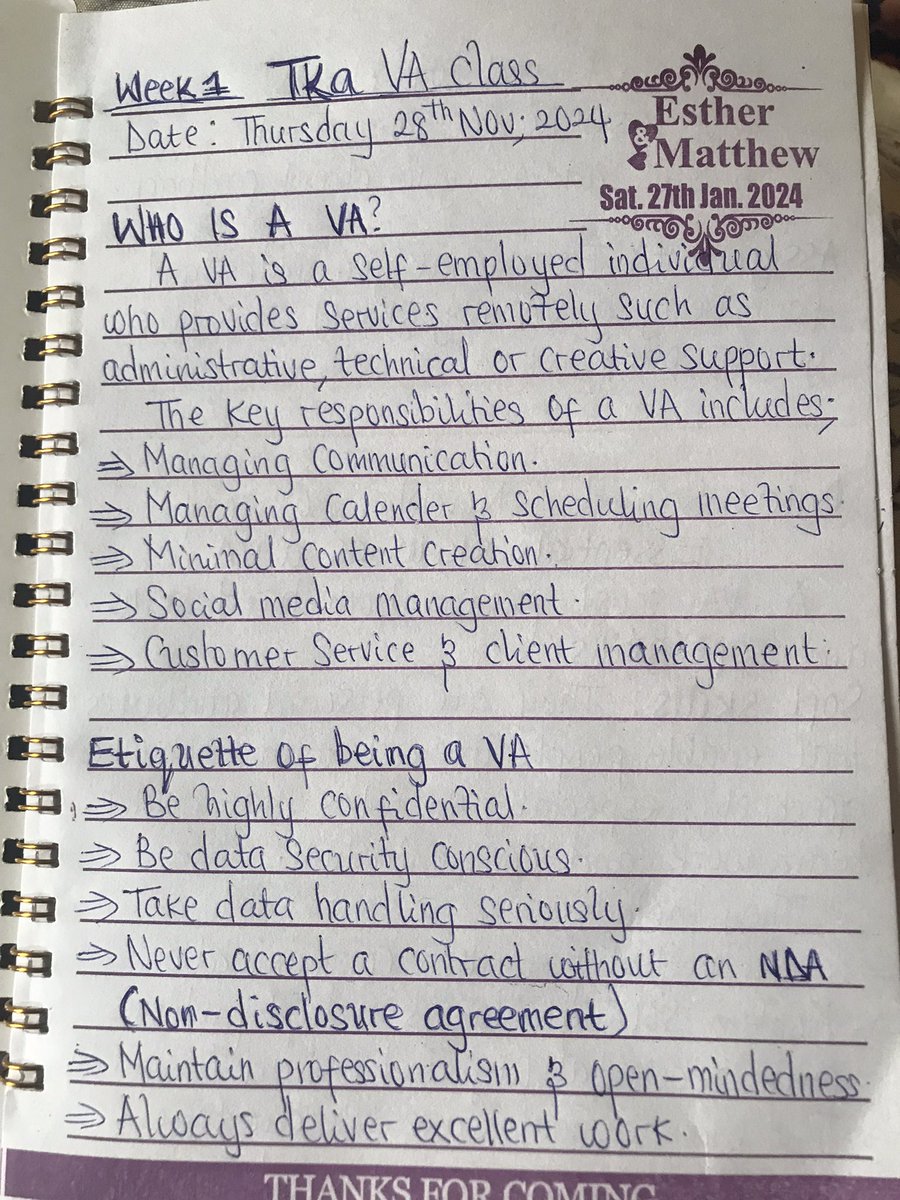 Week 1 TKa VA Class
Date: Thursday 28th Nov, 2024
Esther
&
Matthew
Sat. 27th Jan. 2024
WHO IS A VA?
A VA is a self-employed individual
who provides services remotely such as
administrative, technical or creative support.
The key responsibilities of a VA includes;
⇒ Managing Communication.
⇒ Managing Calender & scheduling meetings.
⇒ Minimal content creation.
⇒ Social media management.
⇒ Customer Service & client management.
Etiquette of being a VA
⇒ Be highly confidential.
⇒ Be data security conscious.
⇒ Take data handling seriously.
⇒ Never accept a contract without an NDA
(Non-disclosure agreement)
⇒ Maintain professionalism & open-mindedness.
⇒ Always deliver excellent work.
THANKS FOR COMING